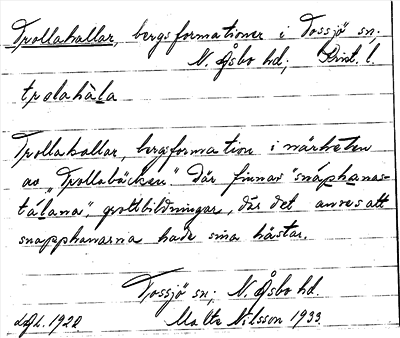 Trollahallar, bergsformationer i Tossjö sn;
N. Åsbo hd; Krist. l.
trolahàla
Trollahallar, bergformation i närheten
av "Trollabäcken". Där finnas "snáphanas-
tálana", grottbildningar, där det anses att
snapphanarna hade sina hästar.
Tossjö sn; N. Åsbo hd.
1922 Malte Nilsson 1933.